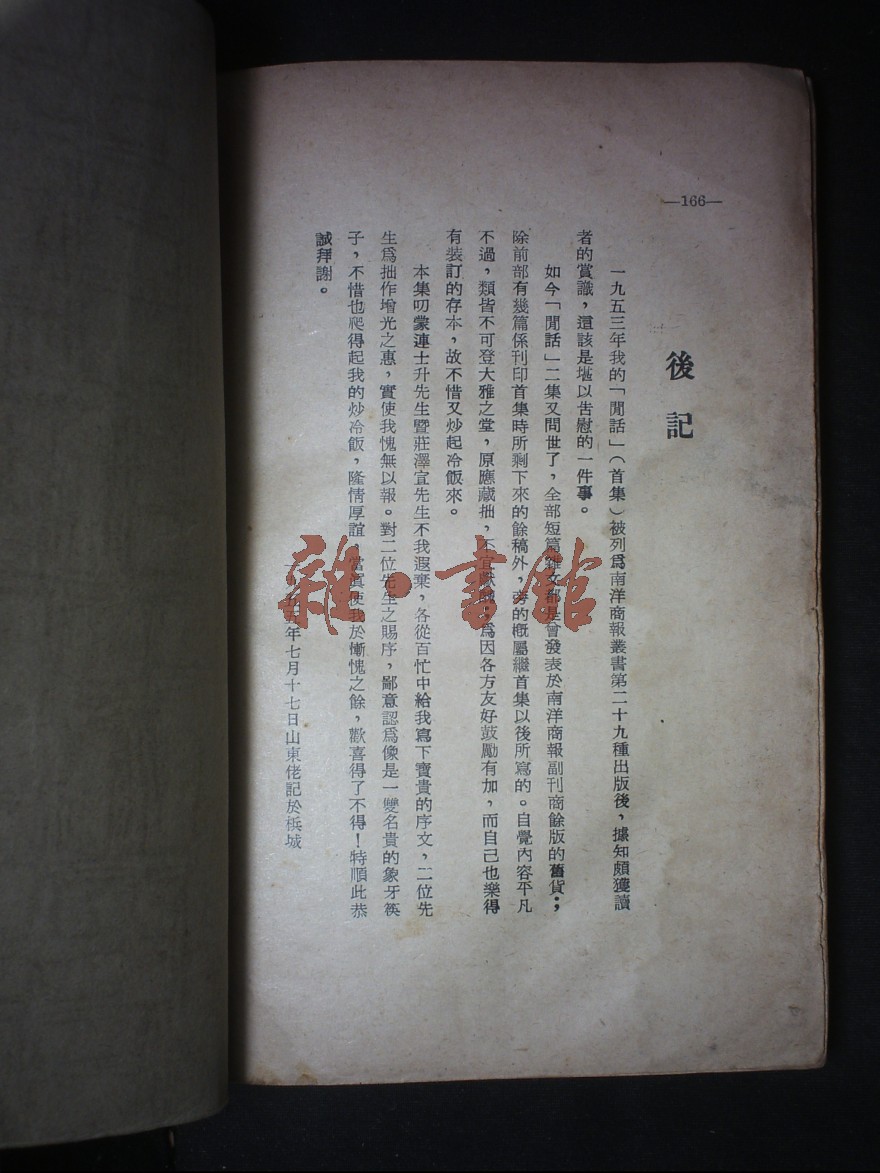 —166—
後記
一九五三年我的「閒話」（首集）被列爲南洋商報叢書第二十九種出版後，據知頗獲讀
者的賞識，這該是堪以吿慰的一件事。
如今「閒話」二集又問世了，全部短篇雜文都是曾發表於南洋商報副刊商餘版的舊貨；
除前部有幾篇係刊印首集時所剩下來的餘稿外，旁的槪屬繼首集以後所寫的。自覺內容平凡
不過，類皆不可登大雅之堂，原應藏拙，不宜獻醜，爲因各方友好鼓勵有加，而自己也樂得
有裝訂的存本，故不惜又炒起冷飯來。
本集叨蒙連士升先生暨莊澤宣先生不我遐棄，各從百忙中給我寫下寶貴的序文，二位先
生爲拙作增光之惠，實使我愧無以報。對二位先生之賜序，鄙意認爲像是一雙名貴的象牙筷
子，不惜也爬得起我的炒冷飯，隆情厚誼，當眞使我於慚愧之餘，歡喜得了不得！特順此恭
誠拜謝。
一九五五年七月十七日山東佬記於檳城
雜·書館